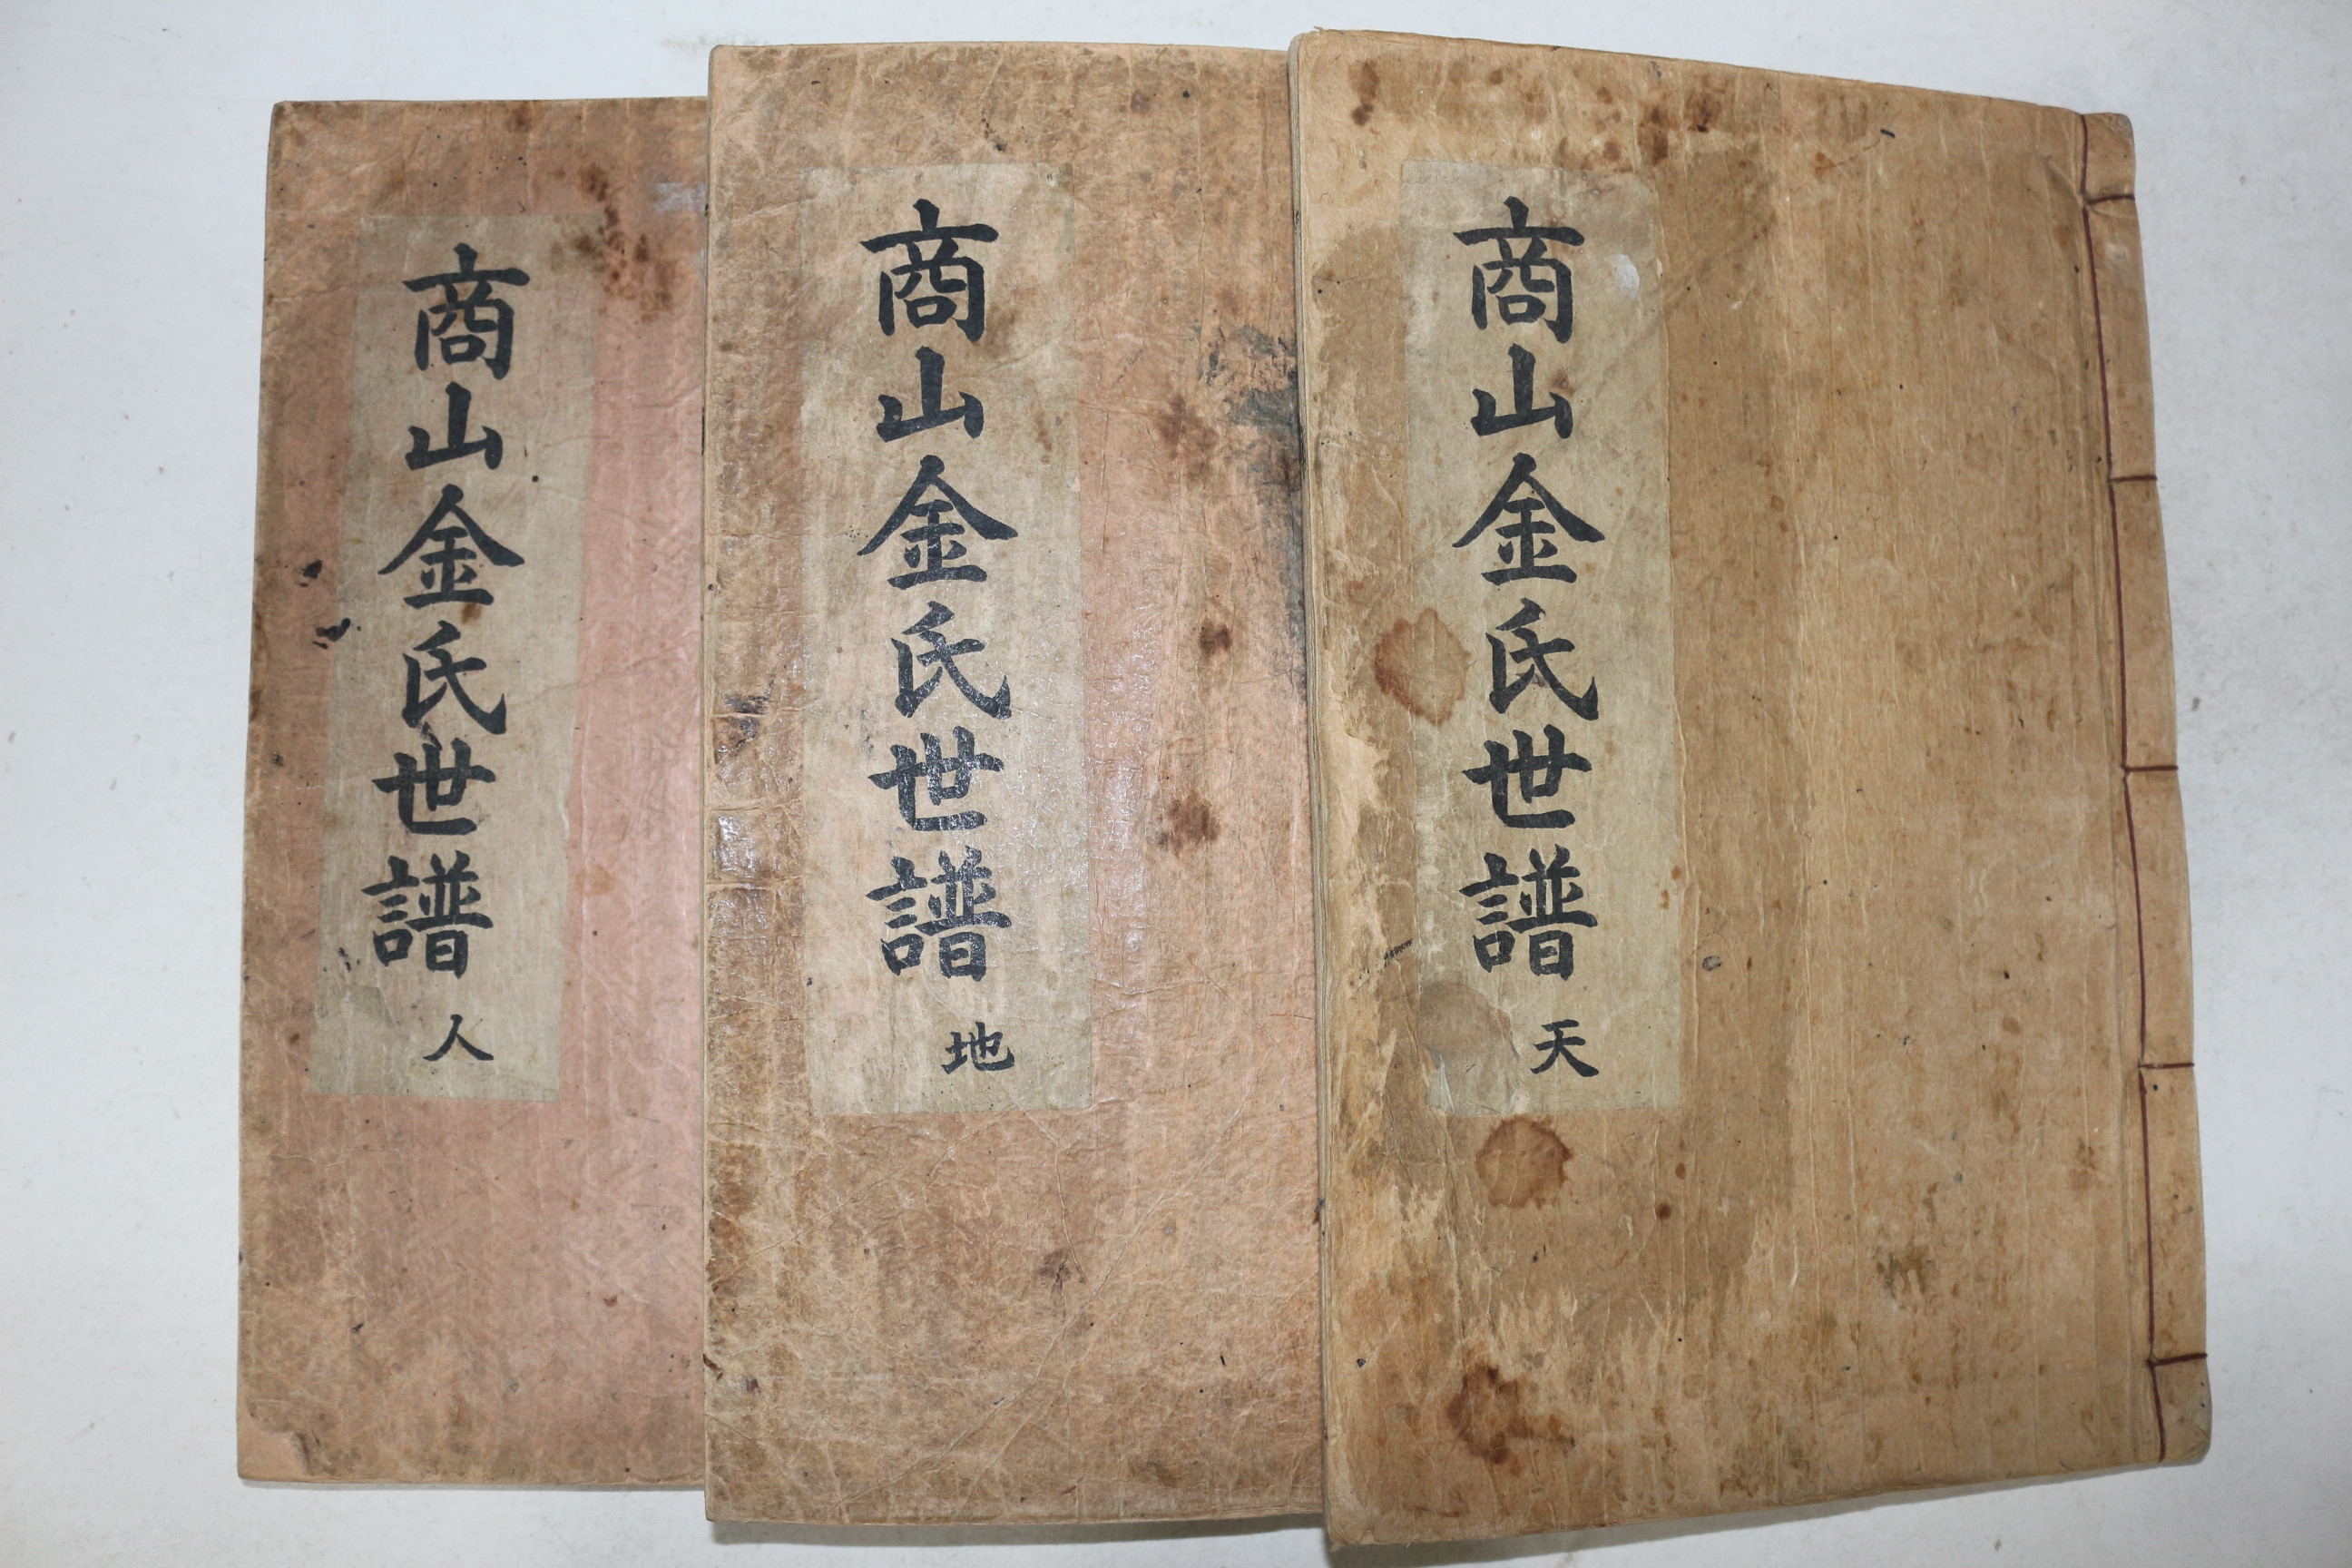 商山金氏世譜 天
商山金氏世譜 地
商山金氏世譜 人